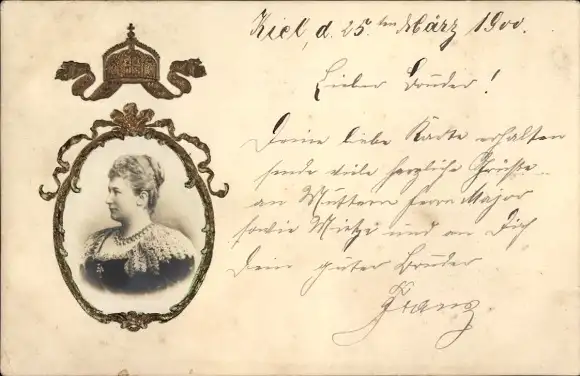 Kiel, d. 25.ten März 1900.
Lieber Bruder!
Deine liebe Karte erhalten
sende viele herzliche Grüße
an Muttern Herrn Major
sowie Mietze und an Dich
Dein guter Bruder
Franz